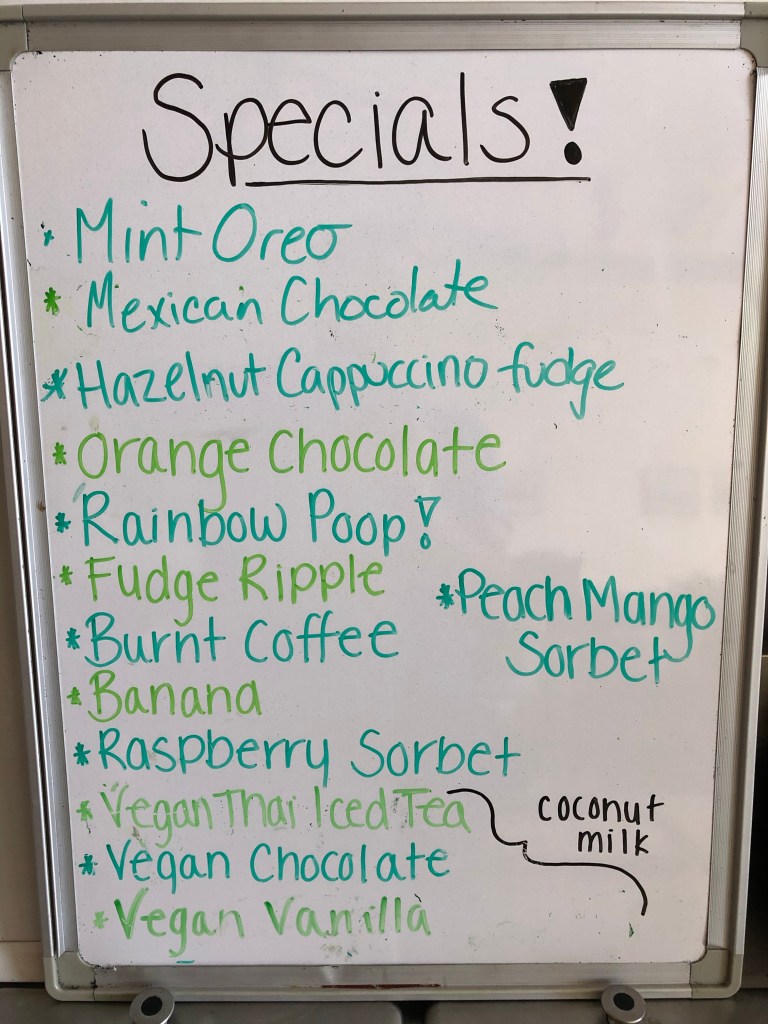 Specials!
* Mint Oreo
* Mexican Chocolate
* Hazelnut Cappuccino fudge
* Orange Chocolate
* Rainbow Poop!
* Fudge Ripple
* Burnt Coffee
* Banana
* Raspberry Sorbet
* Vegan Thai Iced Tea
* Vegan Chocolate
* Vegan Vanilla
* Peach Mango
Sorbet
coconut
milk